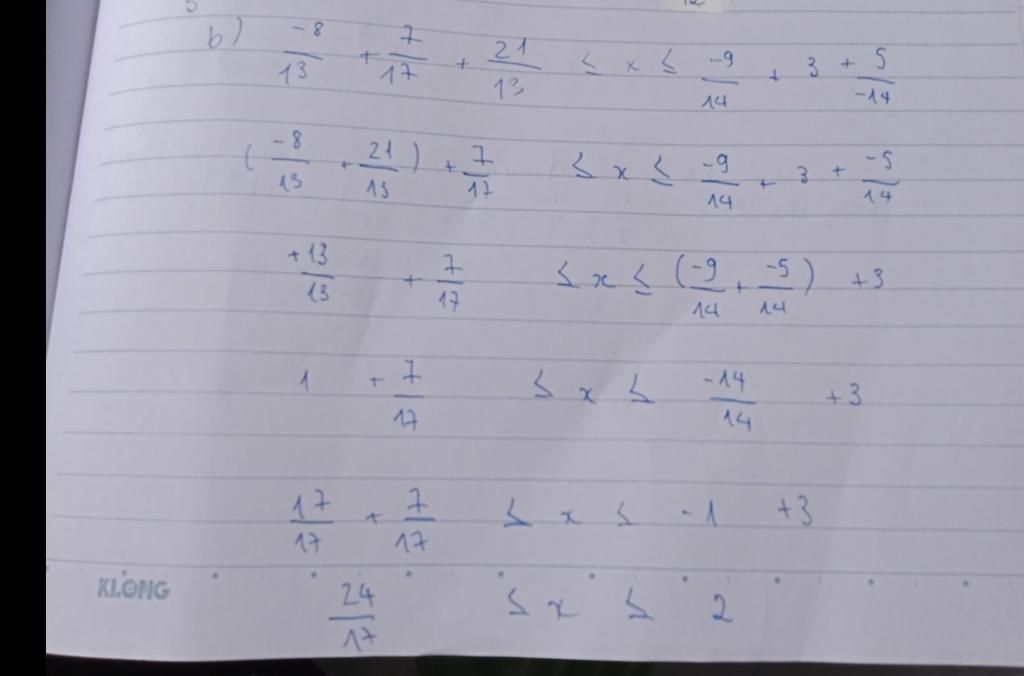 b) -8/13 + 7/17 + 21/13 ≤ x ≤ -9/14 + 3 + 5/-14
(-8/13 + 21/13) + 7/17 ≤ x ≤ -9/14 + 3 + -5/14
+13/13 + 7/17 ≤ x ≤ (-9/14 + -5/14) +3
1 + 7/17 ≤ x ≤ -14/14 +3
17/17 + 7/17 ≤ x ≤ -1 +3
KLONG
24/17 ≤ x ≤ 2